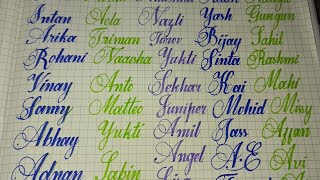 Intan Aela Nazli Yash Gungun
Arika Triman Bijay Sahil
Rohani Naaisha Yukti Sinta Rashmi
Vinay Anto Sekhar Kai Mahi
Samy Matteo Juniper Mohid Missy
Abhay Yukti Amil Jass Affan
Angel A.E Avi
Adnan Sabin